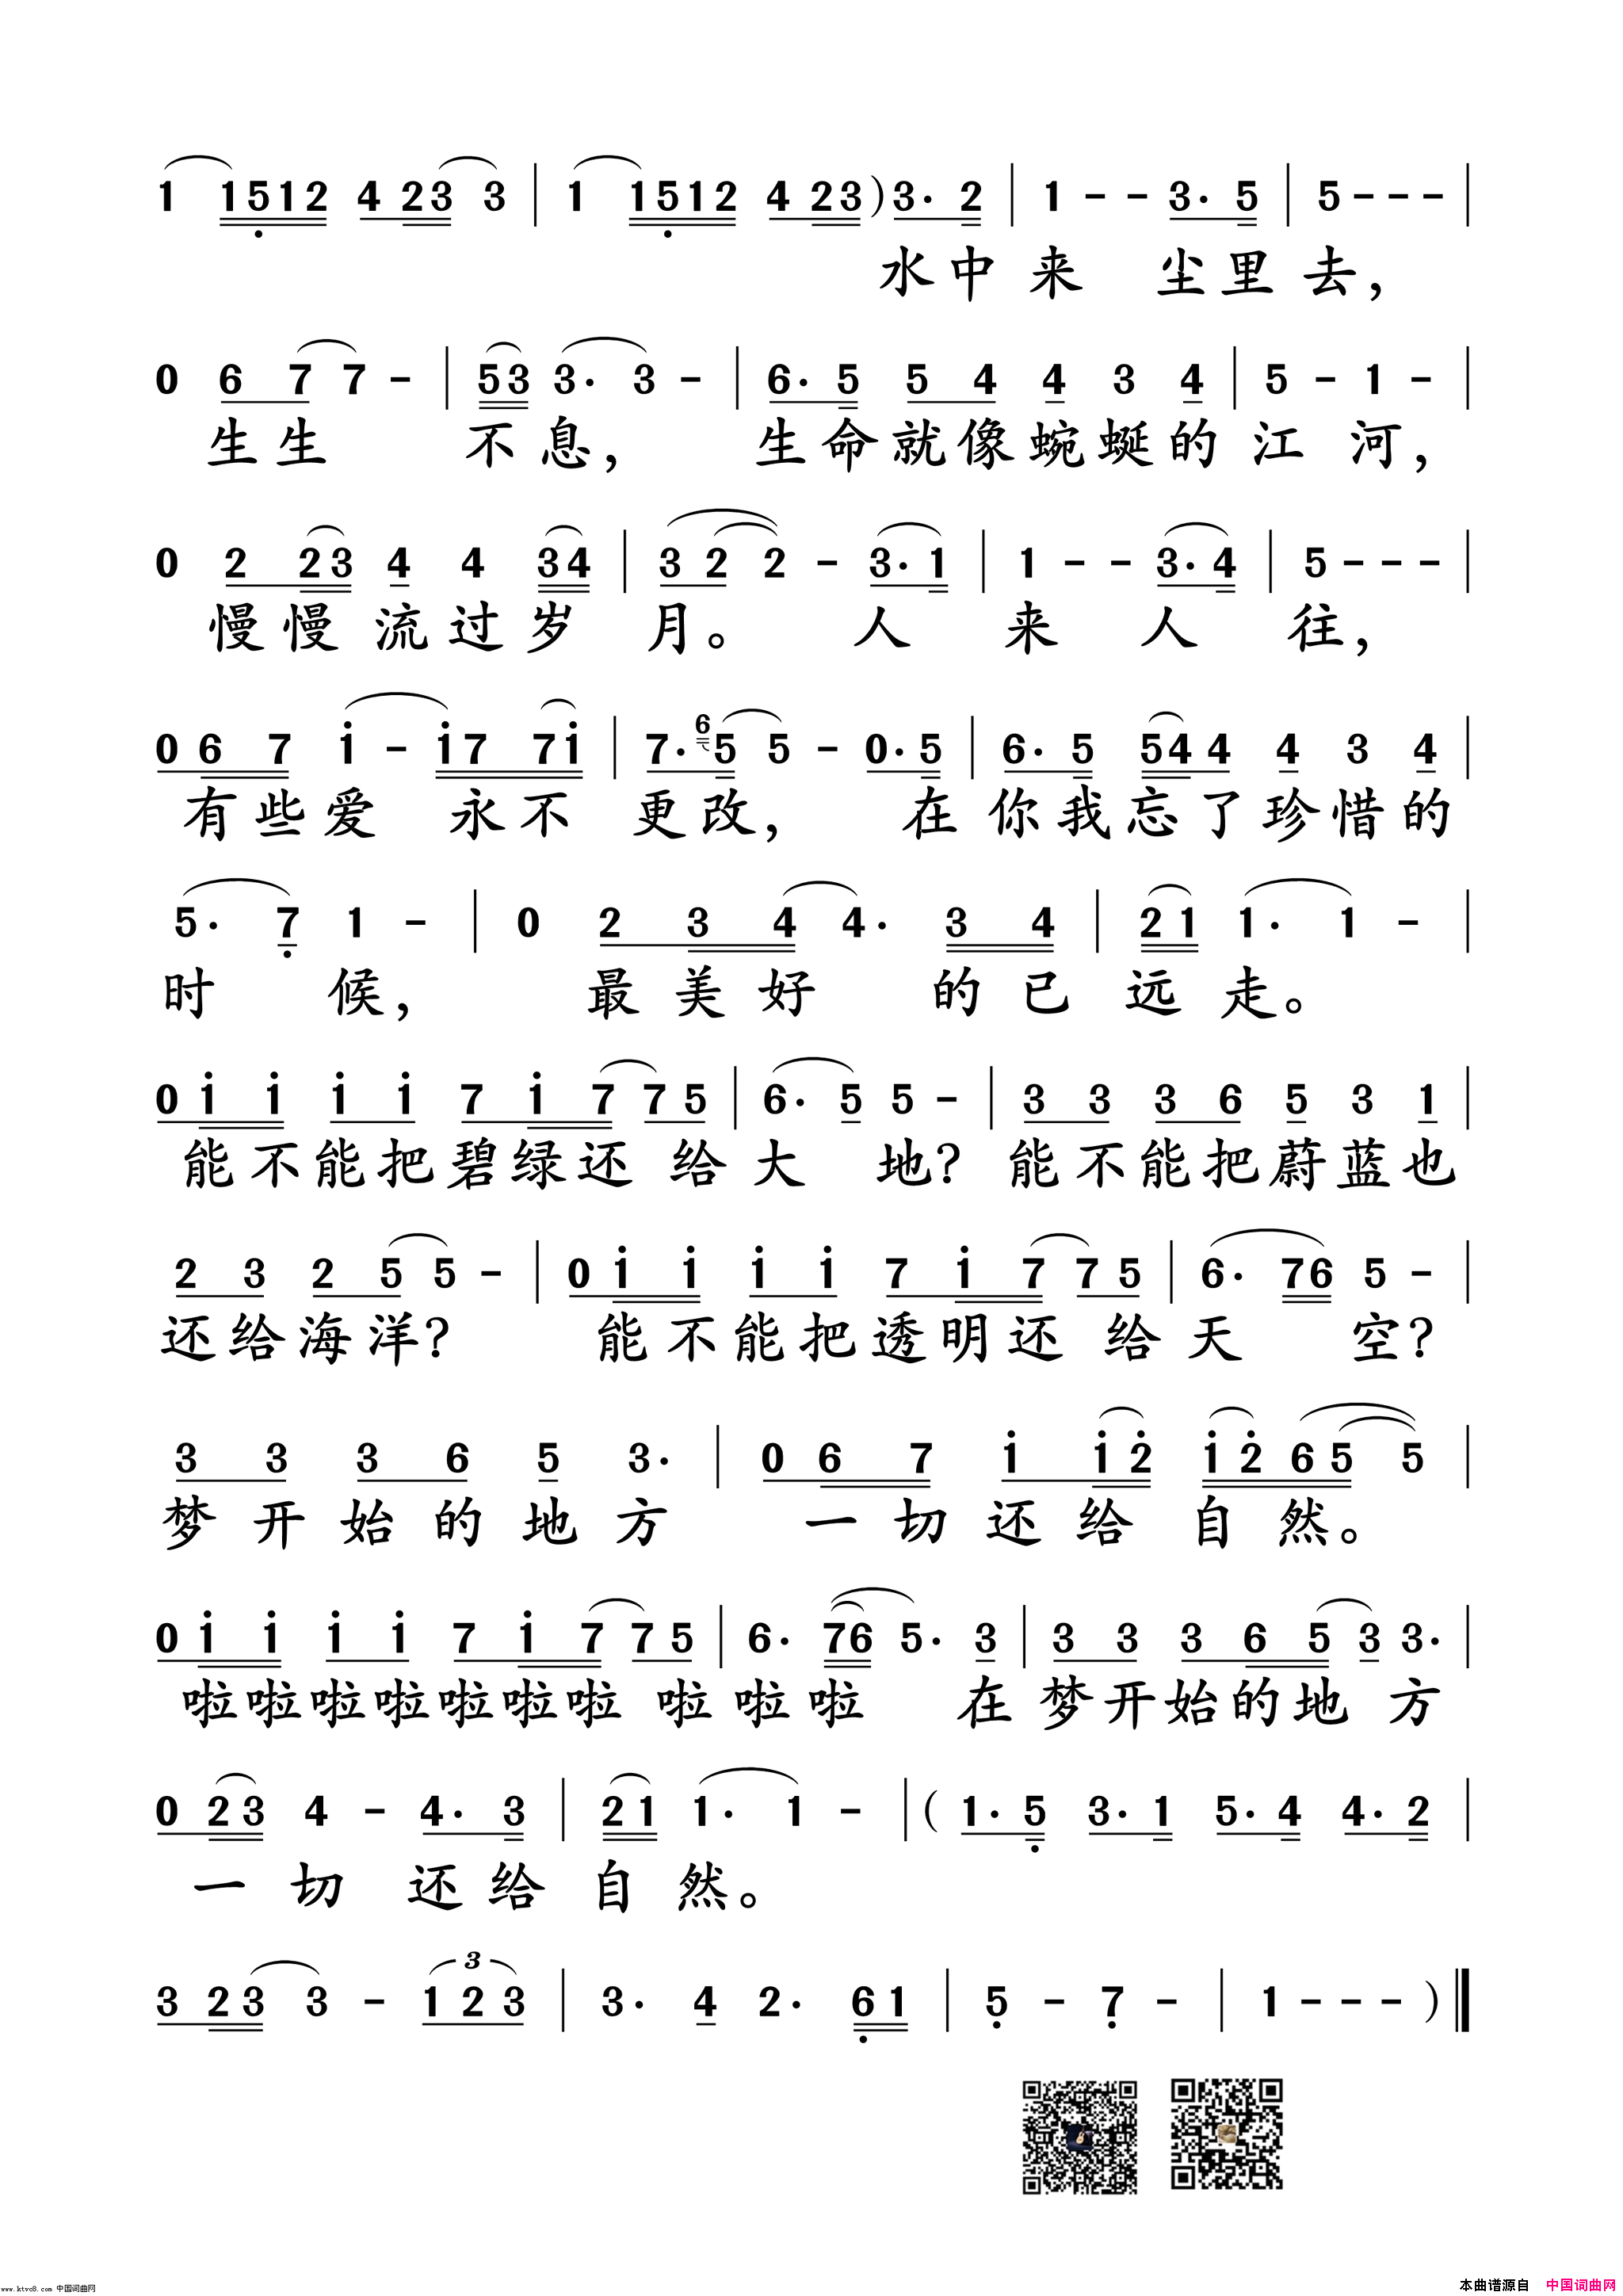 1 1512 4 23 3 | 1 1512 4 23 ) 3· 2 | 1 - - 3· 5 | 5 - - - |
水中来 尘里去，
0 6 7 7 - | 53 3· 3 - | 6· 5 5 4 4 3 4 | 5 - 1 - |
生生 不息， 生命就像蜿蜒的江河，
0 2 23 4 4 34 | 3 2 2 - 3· 1 | 1 - - 3· 4 | 5 - - - |
慢慢流过岁月。 人 来 人 往，
0 6 7 i - i7 7i | 7· 6 5 5 - 0· 5 | 6· 5 54 4 4 3 4 |
有些爱 永不 更改， 在你我忘了珍惜的
5· 7 1 - | 0 2 3 4 4· 3 4 | 21 1· 1 - |
时 候， 最美好 的已远走。
0 i i i i 7 i 7 7 5 | 6· 5 5 - | 3 3 3 6 5 3 1 |
能不能把碧绿还 给大 地？能不能把蔚蓝也
2 3 2 5 5 - | 0 i i i i 7 i 7 7 5 | 6· 76 5 - |
还给海洋？ 能不能把透明还 给天 空？
3 3 3 6 5 3· | 0 6 7 i i2 | i2 6 5 5 |
梦开始的地方 一切还给自然。
0 i i i i 7 i 7 7 5 | 6· 76 5· 3 | 3 3 3 6 5 3 3· |
啦啦啦啦啦啦啦 啦啦啦 在梦开始的地 方
0 23 4 - 4· 3 | 21 1· 1 - | ( 1· 5 3· 1 5· 4 4· 2 |
一切 还给自然。
3 23 3 - 3 1 2 3 | 3· 4 2· 61 | 5 - 7 - | 1 - - - ) ‖
www.ktvc8.com 中国词曲网
本曲谱源自 中国词曲网